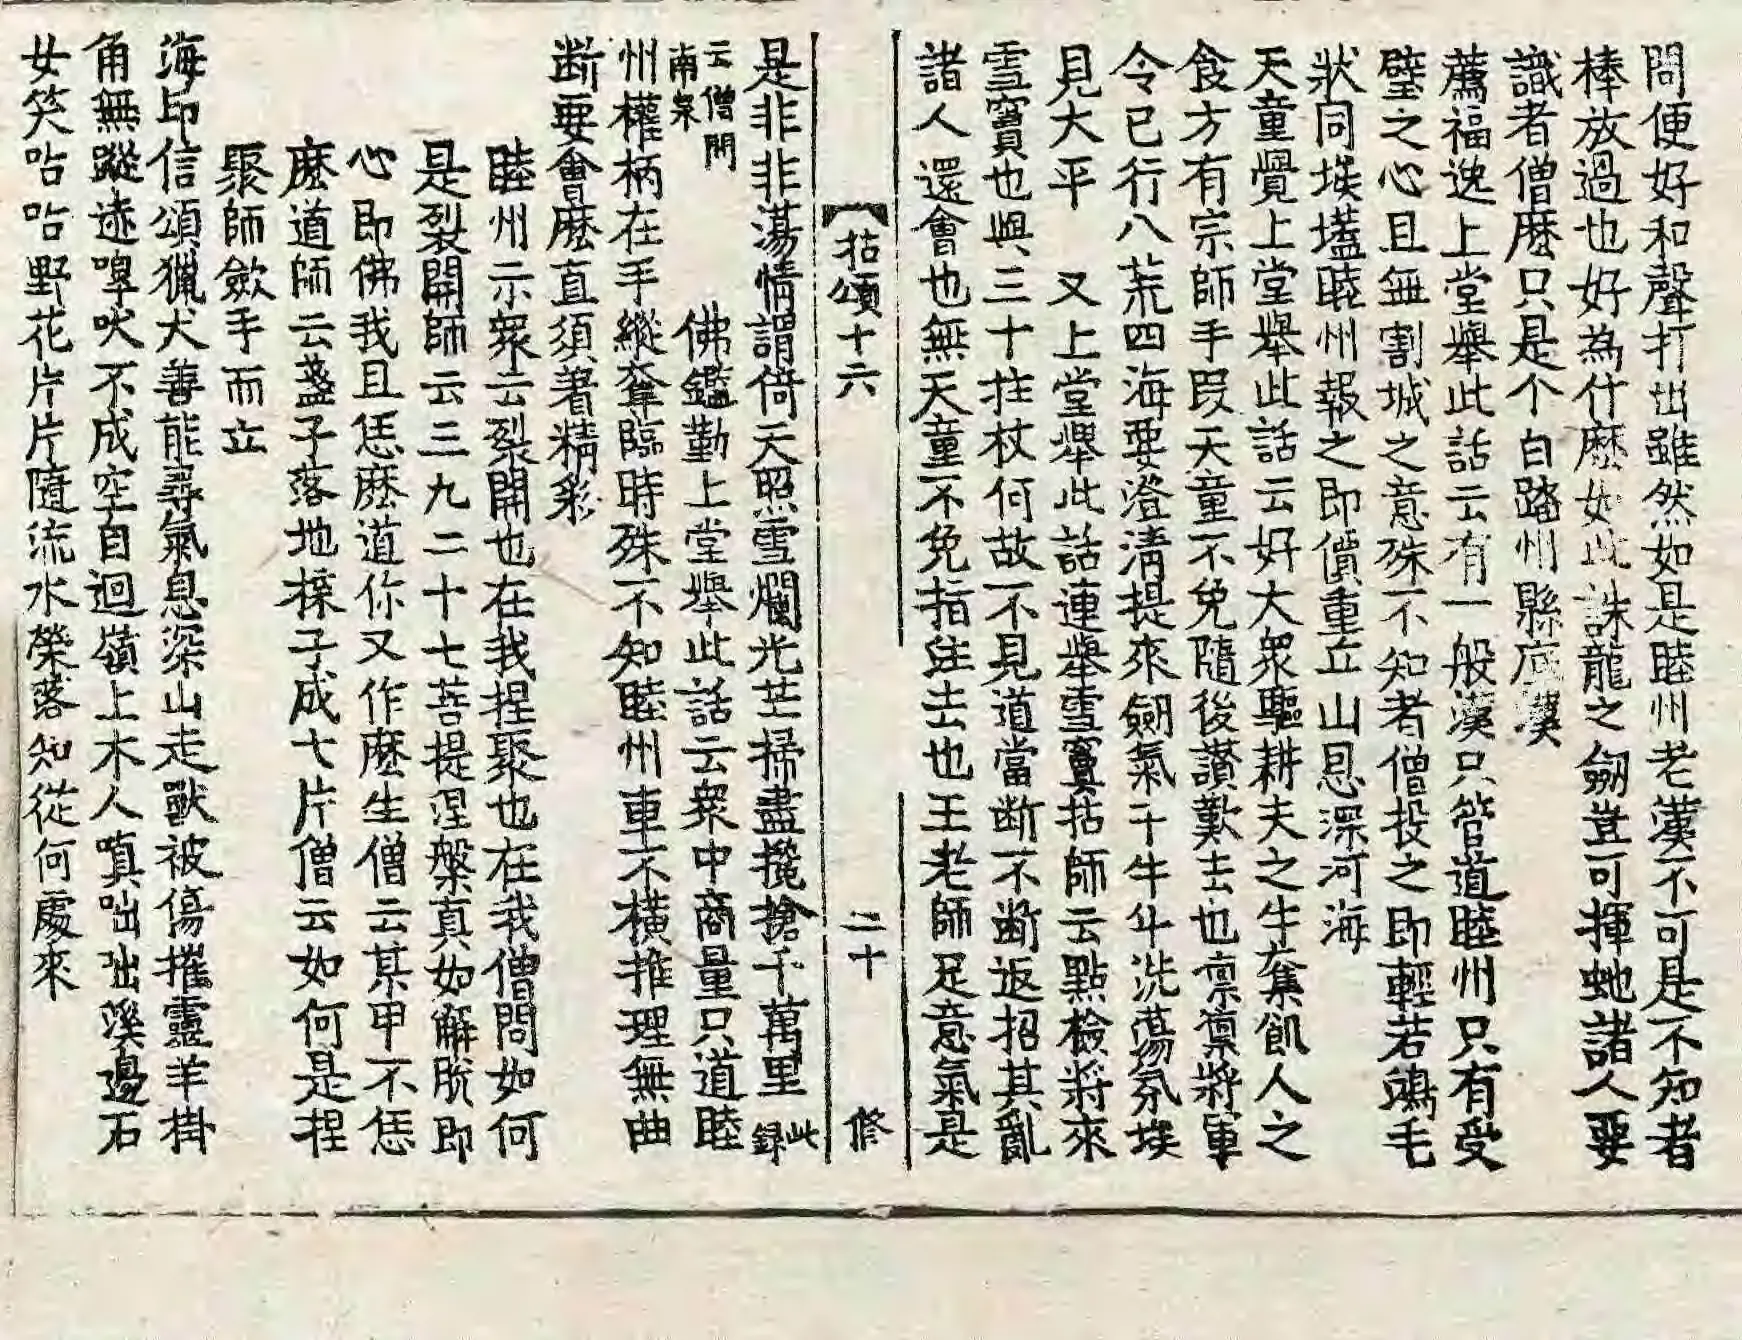 問便好和聲打出雖然如是睦州老漢不可是不知者
棒放過也好為什麽如此誅龍之劒豈可揮虵諸人要
識者僧麽只是个白踏州縣底漢
薦福逸上堂舉此話云有一般漢只管道睦州只有受
璧之心且無割城之意殊不知者僧投之即輕若鴻毛
狀同埃壒睦州報之即價重丘山恩深河海
天童覺上堂舉此話云好大衆驅耕夫之牛奪飢人之
食方有宗師手段天童不免隨後讃歎去也凛凛將軍
令已行八荒四海要澄淸提來劒氣干牛斗洗蕩氛埃
見大平　又上堂舉此話連舉雪竇拈師云點檢將來
雪竇也與三十拄杖何故不見道當断不断返招其亂
諸人還會也無天童不免指注去也王老師足意氣是
拈頌十六　二十　修
是非非蕩情謂倚天照雪爛光芒掃盡攙搶千萬里此録
云僧問南泉　佛鑑勤上堂舉此話云衆中商量只道睦
州權柄在手縱奪臨時殊不知睦州車不横推理無曲
断要會麽直須著精彩
睦州示衆云裂開也在我捏聚也在我僧問如何
是裂開師云三九二十七菩提涅槃真如解脫即
心即佛我且恁麽道你又作麽生僧云某甲不恁
麽道師云盞子落地楪子成七片僧云如何是捏
聚師歛手而立
海印信頌獵犬善能尋氣息深山走獸被傷摧靈羊掛
角無蹤迹嘷吠不成空自迴嶺上木人嗔咄咄溪邊石
女笑咍咍野花片片隨流水榮落知從何處來